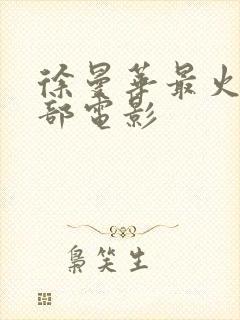 徐曼華最火
部電影
梟笑生